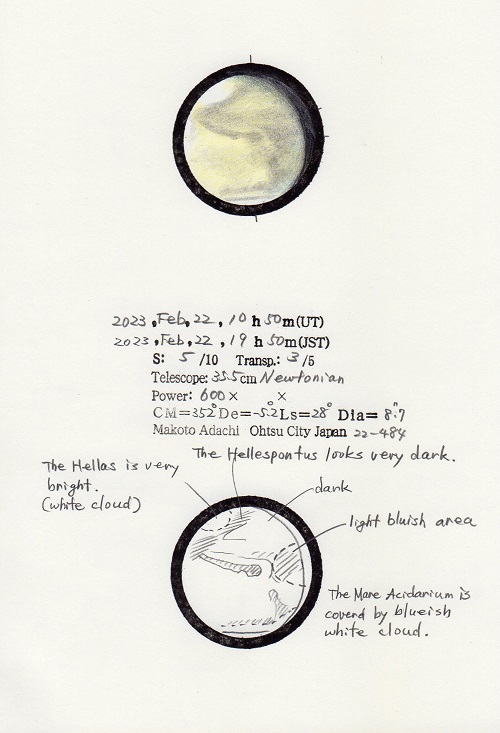 2023, Feb, 22, 10 h 50m(UT)
2023, Feb, 22, 19 h 50m(JST)
S: 5 /10 Transp.: 3 /5
Telescope: 35.5cm Newtonian
Power: 600 × ×
CM=352° De=-5.2° Ls=28° Dia= 8.″7
Makoto Adachi Ohtsu City Japan 22-484
The Hellespontus looks very dark.
The Hellas is very
bright.
(white cloud)
dark
light bluish area
The Mare Acidarium is
coverd by blueish
white cloud.